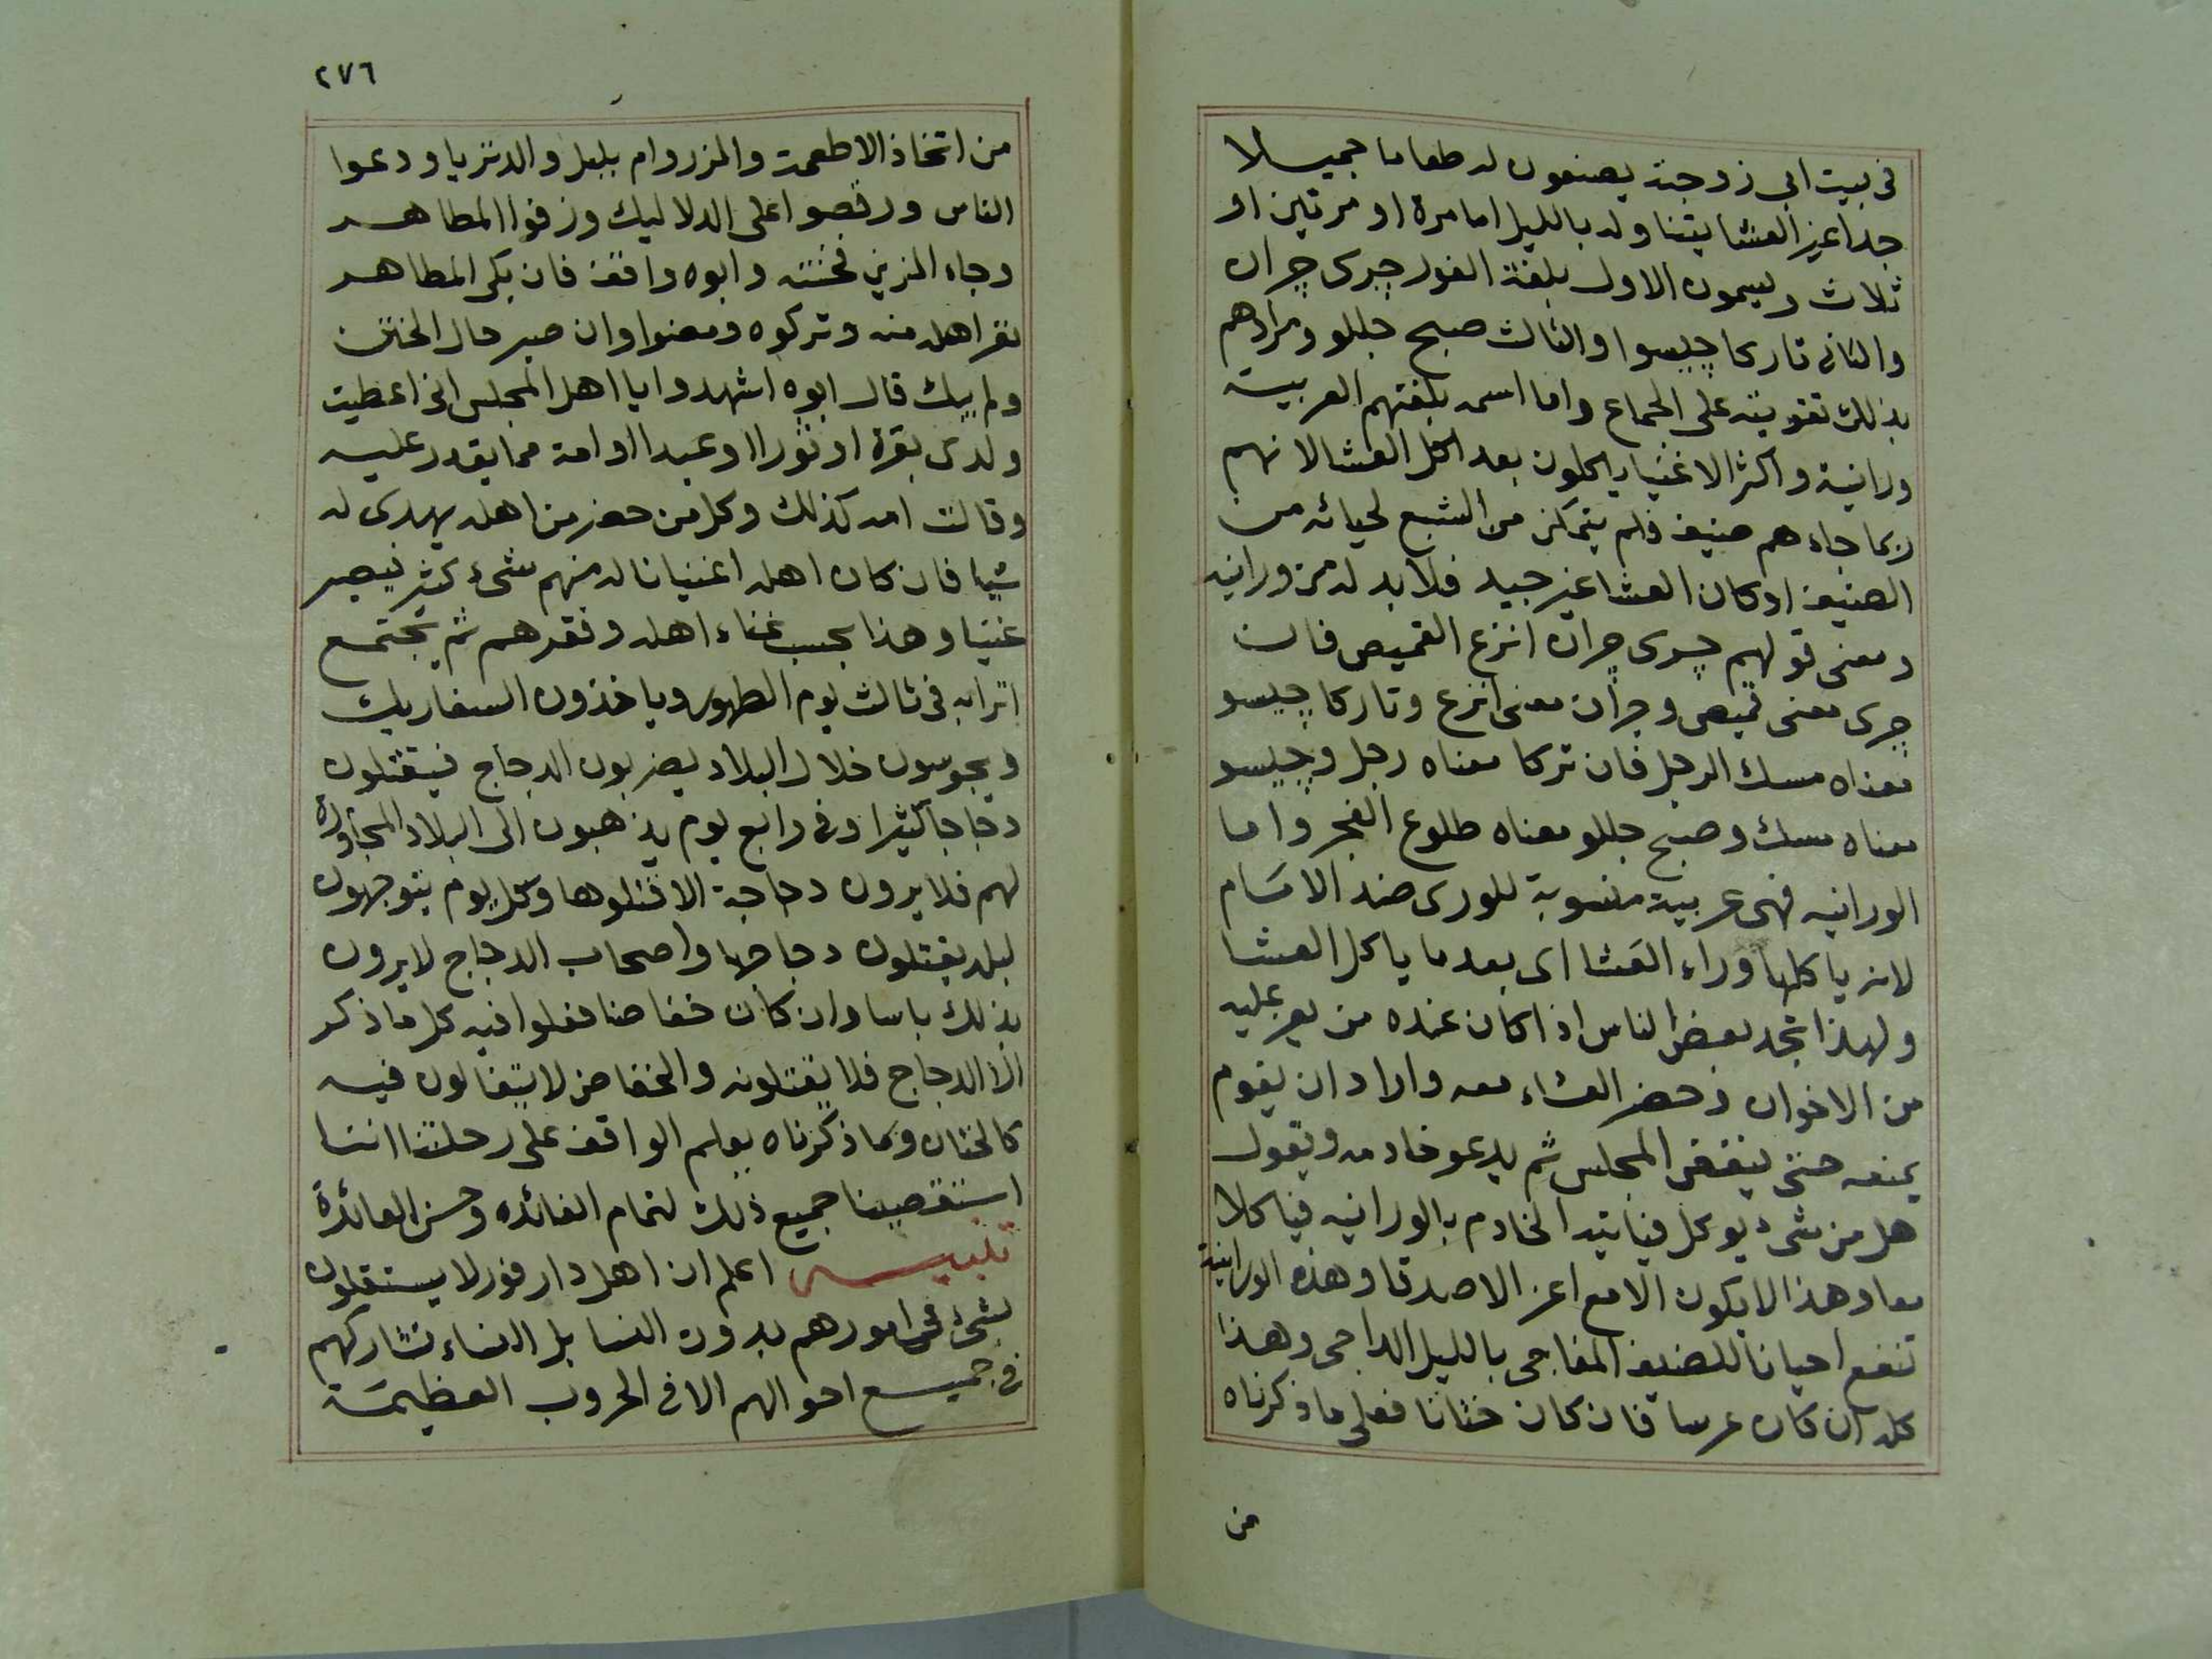 فى بيت ابى زوجته يصنعون له طعاما جميلا
جدا غير العشا يتناوله بالليل اما مرة او مرتين او
ثلاث ويسمون الاول بلغة الفور جرى جران
والثانى تاركا جيسو والثالث صبح جللو ومرادهم
بذلك تقويته على الجماع واما اسمه بلغتهم العربية
ورانية واكثر الاغنيا ياكلون بعد اكل العشا لانهم
ربما جاءهم ضيف فلم يتمكن من الشبع لحيائه من
الضيف او كان العشا غير جيد فلا بد له من ورانيه
ومعنى قولهم جرى جران انزع القميص فان
جرى معنى قميص وجران معنى انزع وتاركا جيسو
معناه مسك الرجل فان تركا معناه رجل وجيسو
معناه مسك وصبح جللو معناه طلوع الفجر واما
الورانيه فهى عربية منسوبة للورى ضد الامام
لانه ياكلها وراء العشا اى بعد ما ياكل العشا
ولهذا تجد بعض الناس اذا كان عنده من يعز عليه
من الاخوان وحضر العشاء معه واراد ان يقوم
يمنعه حتى ينفض المجلس ثم يدعو خادمه ويقول
هل من شىء يوكل فياتيه الخادم بالورانيه فياكلا
معا وهذا لا يكون الا مع اعز الاصدقا وهذه الورانية
تنفع احيانا للضيف المفاجى بالليل الداجى وهذا
كله ان كان عرسا فان كان ختانا فعلى ما ذكرناه
من
٢٧٦
من اتخاذ الاطعمة والمزر وام بلبل والدنزيا ودعوا
الناس ورقصوا على الدلاليك وزفوا المطاهر
وجاء المزين فختنه وابوه واقف فان بكى المطاهر
نفر اهله منه وتركوه ومضوا وان صبر حال الختن
ولم يبك قال ابوه اشهدوا يا اهل المجلس انى اعطيت
ولدى بقرة او ثورا او عبدا او امة مما يقدر عليه
وقالت امه كذلك وكل من حضر من اهله يهدى له
شيا فان كان اهله اغنيا ناله منهم شىء كثير فيصير
غنيا وهذا بحسب غناء اهله وفقرهم ثم يجتمع
اترابه فى ثالث يوم الطهور وياخذون السفاريك
ويجوسون خلال البلاد يضربون الدجاج فيقتلون
دجاجا كثيرا وفى رابع يوم يذهبون الى البلاد المجاورة
لهم فلا يرون دجاجة الا قتلوها وكل يوم يتوجهون
لبلد يقتلون دجاجها واصحاب الدجاج لا يرون
بذلك باسا وان كان خفاضا فعلوا فيه كل ما ذكر
الا الدجاج فلا يقتلونه والخفاض لا يتغالون فيه
كالختان وبما ذكرناه يعلم الواقف على رحلتنا اننا
استقصينا جميع ذلك لتمام الفائده وحسن العائدة
تنبيه اعلم ان اهل دارفور لا يستقلون
بشىء من امورهم بدون النسا بل النساء تشاركهم
فى جميع احوالهم الا فى الحروب العظيمة